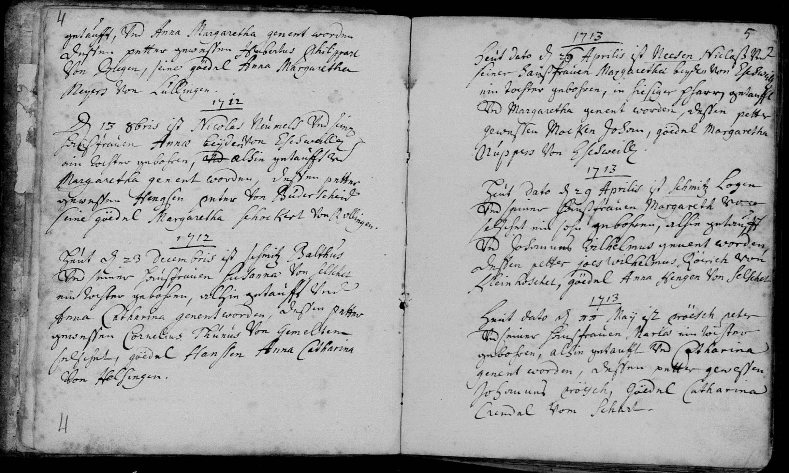 4
getaufft, Und Anna Margaretha genent worden
dessen petter gewessen Hubertus Philippart
Von, seine göedel Anna Margaretha
Meyers Von Lullingen.
1712
D 13 8bris ist Nicolas Neumels Und seine
haussfrauen Anna beyde Von Eschweiller
ein tochter gebohren, alhir getaufft Und
Margaretha genent worden, dessen petter
gewessen Hengsen peter Von Buderscheid
seine göedel Margaretha schockert Von Bollingen.
1712
Heut d 23 Decembris ist schmitz Balthus
Und seiner haussfrauen susanna Von selschet
ein tochter gebohren, alhir getaufft Und
Anna Catharina genent worden, dessen petter
gewessen Cornelius Thunus Von
selschet, göedel Hansen Anna Catharina
Von Holsingen.
4
5
1713
Heut dato d Aprilis ist Neesen Niclass Und
seiner haussfrauen Margaretha beyde Von Eschweiller
ein tochter gebohren, in hiesiger pfarr getaufft
Und Margaretha genent worden, dessen petter
gewessen Johan, göedel Margaretha
Kuppers Von Eschweiller
1713
Heut dato d 29 Aprilis ist schmitz
Und seiner haussfrauen Margareth Von
selschet ein sohn gebohren, alhir getaufft
Und Johannes Wilhelmus genent worden,
dessen petter Joes Wilhelmus Von
Klein, göedel Anna Hengen Von selschet
1713
Heut dato d May ist Cröesch peter
Und seiner haussfrauen Maria ein tochter
gebohren, alhir getaufft Und Catharina
genent worden, dessen petter gewessen
Johannes Cröesch, göedel Catharina
Vom